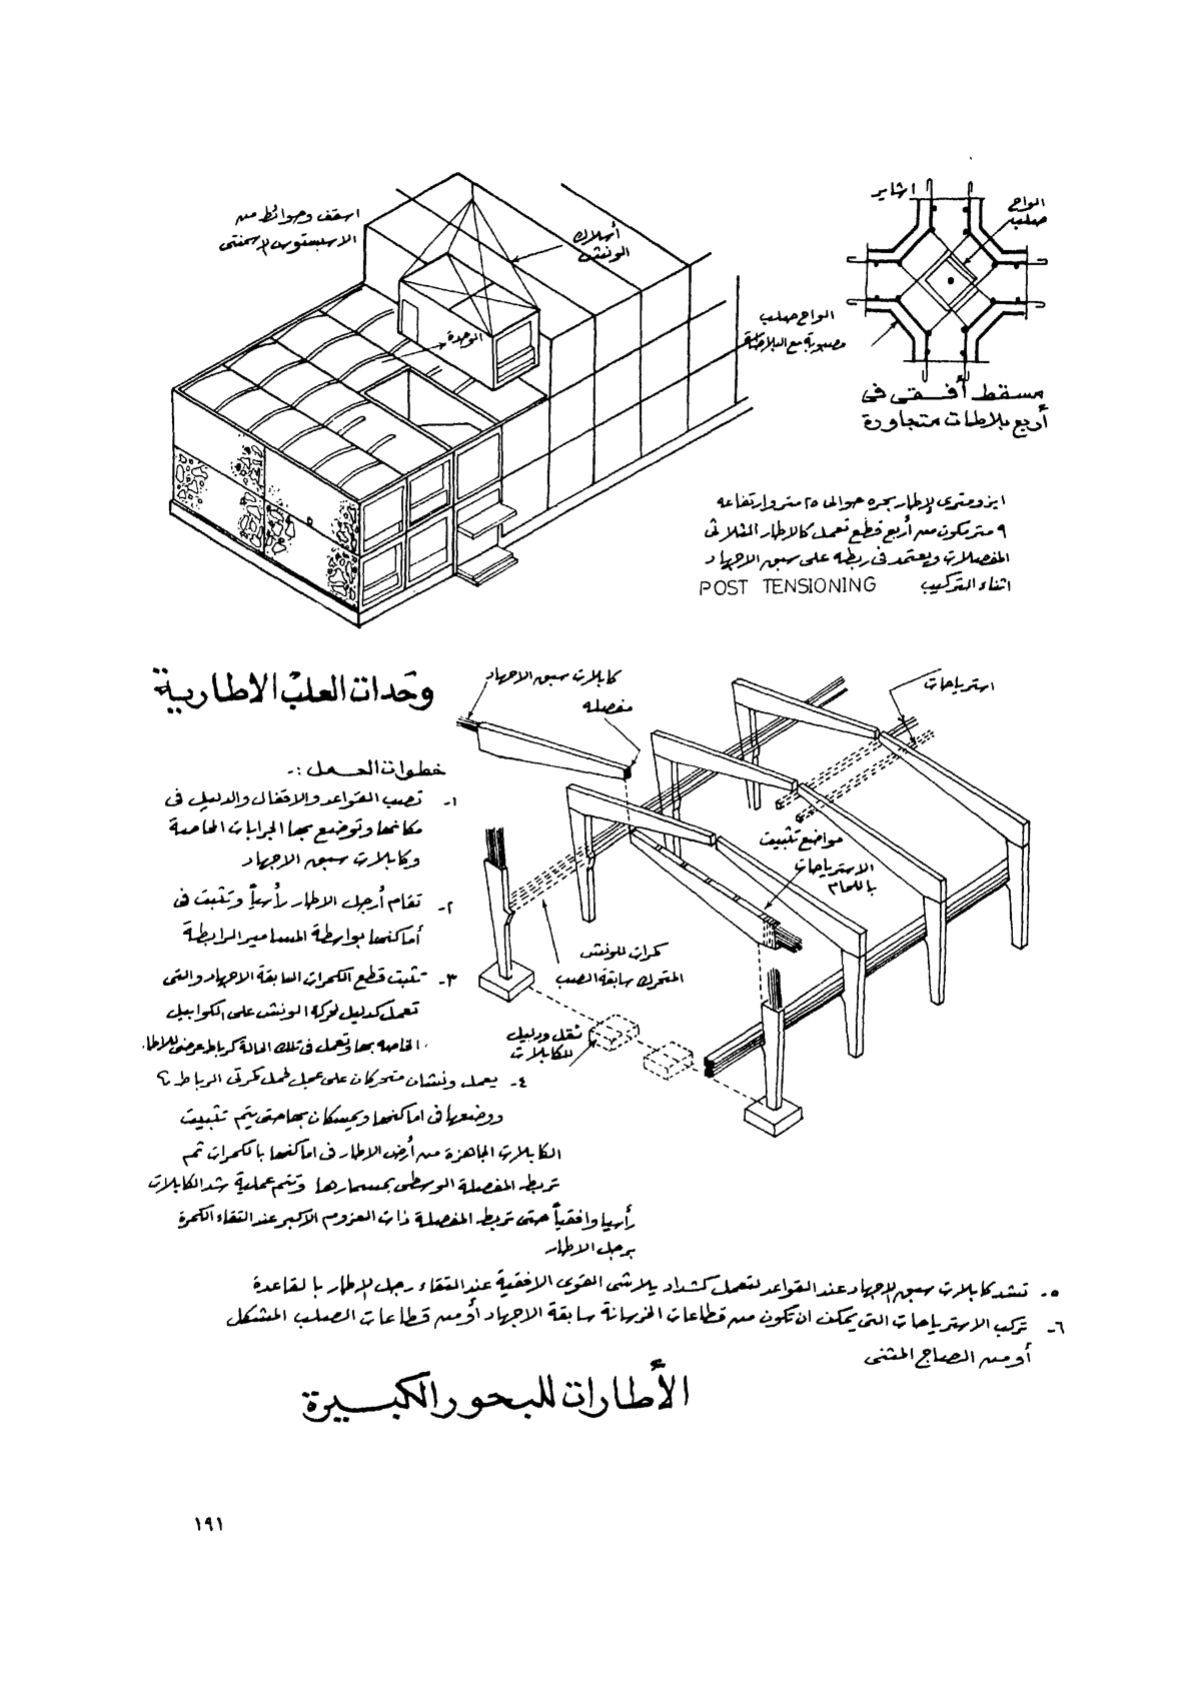 اسقف وحوائط من
الاسبستوس الاسمنتى
أسلاك
الونش
الوحدة
اشاير
الواح
صلب
الواح صلب
مصبوبة مع البلاطة
مسقط أفقى فى
أربع بلاطات متجاورة
ايزومترى لإطار بحره حوالى ٢٥ متر وارتفاعه
٩ متر مكون من أربع قطع تعمل كالاطار الثلاثى
المفصلات ويعتمد فى ربطه على سبق الاجهاد
اثناء التركيب POST TENSIONING
وحدات العلب الاطارية
كابلات سبق الاجهاد
مفصله
استرياحات
مواضع تثبيت
الاسترياحات
باللحام
كمرات للونش
المتحرك سابقة الصب
ثقل ودليل
للكابلات
خطوات العمل :-
١- تصب القواعد والاقفال والدليل فى
مكانها وتوضع بها الجرابات الخاصة
وكابلات سبق الاجهاد
٢- تقام أرجل الاطار رأسياً وتثبت فى
أماكنها بواسطة المسامير الرابطة
٣- تثبت قطع الكمرات السابقة الاجهاد والتى
تعمل كدليل لحركة الونش على الكوابيل
الخاصه بها وتعمل فى تلك الحالة كرباط عرضى للاطار
٤- يعمل ونشان متحركان على عجل لحمل كمرتى الرباط
ووضعها فى اماكنها ويمسكان بها حتى يتم تثبيت
الكابلات الجاهزة من أرض الاطار فى اماكنها بالكمرات ثم
تربط المفصلة الوسطى بمسمارها وتتم عملية شد الكابلات
رأسيا وافقياً حتى تربط المفصلة ذات العزوم الأكبر عند التقاء الكمرة
برجل الاطار
٥- تشد كابلات سبق الإجهاد عند القواعد لتعمل كشداد يلاشى القوى الافقية عند التقاء رجل الإطار بالقاعدة
٦- تركب الاسترياحات التى يمكن ان تكون من قطاعات الخرسانة سابقة الاجهاد أو من قطاعات الصلب المشكل
أو من الصاج المثنى
الأطارات للبحور الكبيرة
١٩١